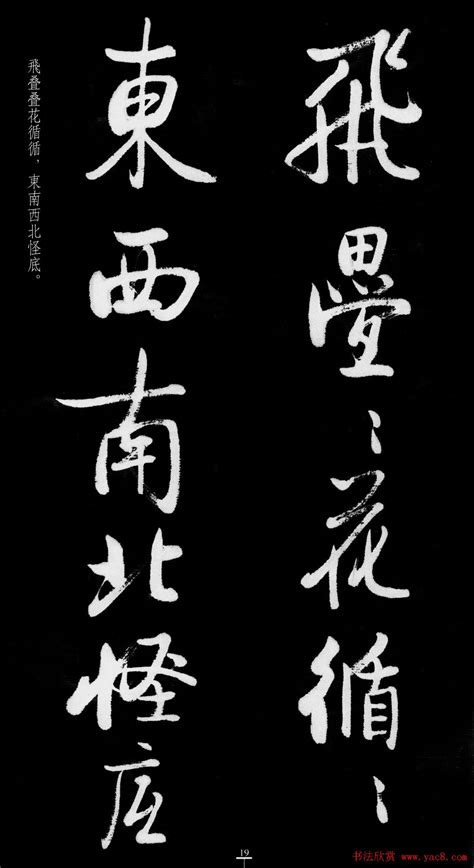 飛疊〻花循〻
東西南北怪底
飛叠叠花循循，東南西北怪底。
19
书法欣赏 www.yac8.com